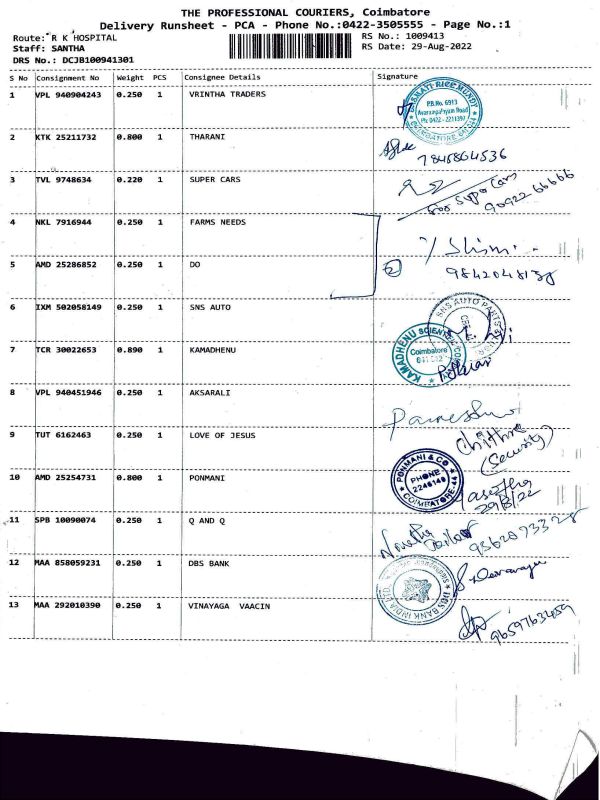 THE PROFESSIONAL COURIERS, Coimbatore
Delivery Runsheet - PCA - Phone No.:0422-3505555 - Page No.:1
Route: R K HOSPITAL RS No.: 1009413
Staff: SANTHA RS Date: 29-Aug-2022
DRS No.: DCJB100941301
S No Consignment No Weight PCS Consignee Details Signature
1 VPL 940904243 0.250 1 VRINTHA TRADERS
P.B.No. 6913
Ph: 0422 - 2211397
2 KTK 25211732 0.800 1 THARANI
7845864536
3 TVL 9748634 0.220 1 SUPER CARS
for Super Cars
90922 66666
4 NKL 7916944 0.250 1 FARMS NEEDS
5 AMD 25286852 0.250 1 DO
2
6 IXM 502058149 0.250 1 SNS AUTO
SNS AUTO PARTS
7 TCR 30022653 0.890 1 KAMADHENU
KAMADHENU SCIENTIFIC
Coimbatore
8 VPL 940451946 0.250 1 AKSARALI
9 TUT 6162463 0.250 1 LOVE OF JESUS
Chithra
(Security)
10 AMD 25254731 0.800 1 PONMANI
PONMANI & CO
PHONE
COIMBATORE-44
29/8/22
11 SPB 10090074 0.250 1 Q AND Q
12 MAA 858059231 0.250 1 DBS BANK
DBS BANK INDIA LTD
13 MAA 292010390 0.250 1 VINAYAGA VAACIN
9659763459